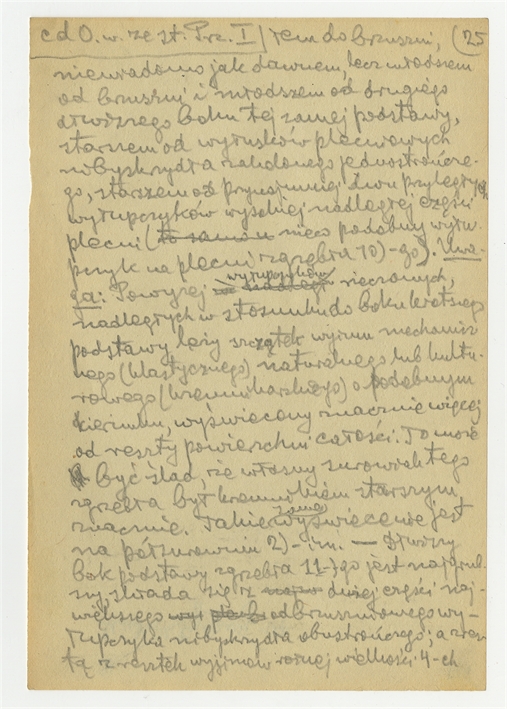 c d O. w. ze st. Prz. I) tem do brzuszni, (25
niewiadomo jak dawnem, lecz młodszem
od brzuszni i młodszem od drugiego
dłuższego boku tej samej podstawy,
starszem od wyłusków plecniowych
nibyskrzydła jednostronne-
go, starszem od przynajmniej dwu przyległych
wyłupczyków wysokiej nadległej części
plecni (to samo nieco podobny wyłu-
pczyk na plecni zgrzebła 10)-go). Uwa-
ga: Powyżej wyłupczyków niecownych,
nadległych w stosunku do boku krótszego
podstawy leży szczątek wyjmu mechanicz
nego (klastycznego) naturalnego lub kultu-
rowego (krzemieniarskiego) o podobnym
kierunku, wyświecony znacznie więcej
od reszty powierzchni całości. To może
być ślad, że własny surowiak tego
zgrzebła był krzemieniem starszym
znacznie. Takie same wyświecenie jest
na półsurowiaku 2)-im. — Dłuższy
bok podstawy zgrzebła 11-)go jest najgrub-
szy, składa się z dużej części naj-
większego odbrzuszniowego wy-
łupczyka nibyskrzydła obustronnego; a resz
tą z resztek wyjmów różnej wielkości 4-ch